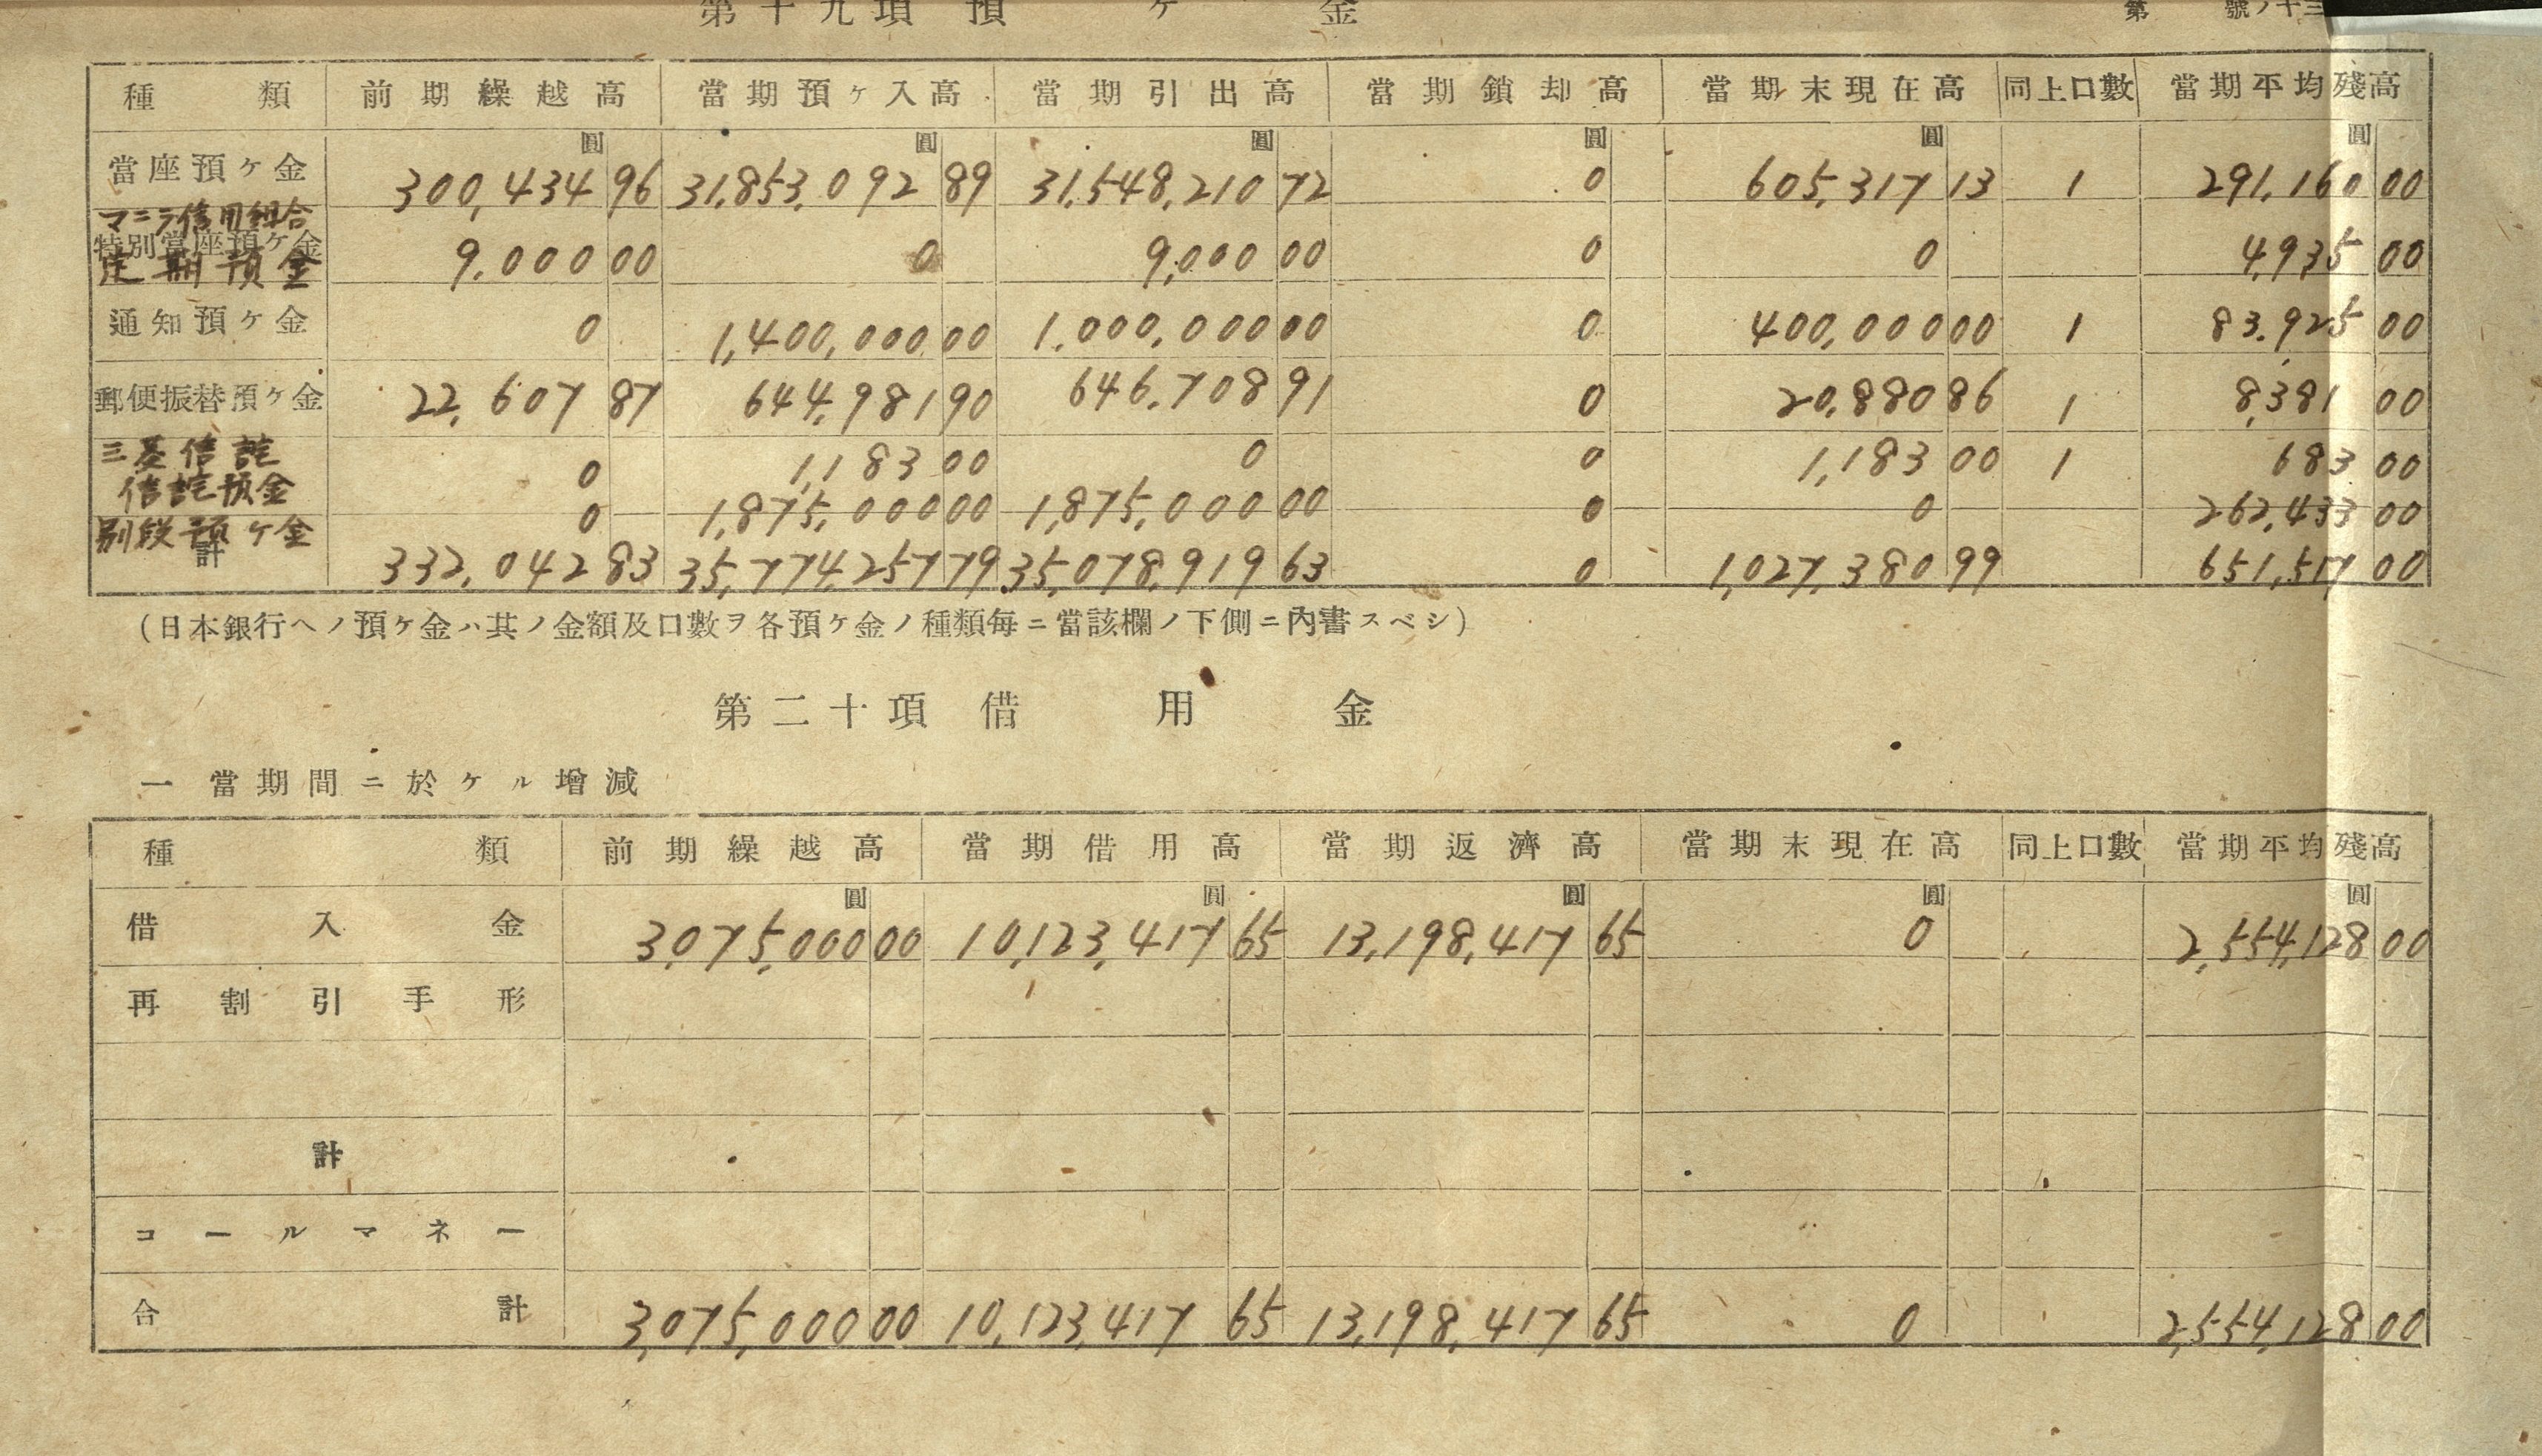 第十九項 預ヶ金 第 號ノ十三
種類 前期繰越高 當期預ヶ入高 當期引出高 當期鎖却高 當期末現在高 同上口數 當期平均殘高
圓 圓 圓 圓 圓 圓
當座預ヶ金 300,434 96 31,853,092 89 31,548,210 72 0 605,317 13 1 291,160 00
マニラ信用組合
特別當座預ヶ金
定期預金 9,000 00 0 9,000 00 0 0 4,935 00
通知預ヶ金 0 1,400,000 00 1,000,000 00 0 400,000 00 1 83,925 00
郵便振替預ヶ金 22,607 87 644,981 90 646,708 91 0 20,880 86 1 8,381 00
三菱信託
信託預金 0 1,183 00 0 0 1,183 00 1 683 00
別段預ヶ金 0 1,875,000 00 1,875,000 00 0 0 262,433 00
計 332,042 83 35,774,257 79 35,078,919 63 0 1,027,380 99 651,517 00
(日本銀行ヘノ預ヶ金ハ其ノ金額及口數ヲ各預ヶ金ノ種類每ニ當該欄ノ下側ニ內書スベシ)
第二十項 借用金
一 當期間ニ於ケル增減
種類 前期繰越高 當期借用高 當期返濟高 當期末現在高 同上口數 當期平均殘高
圓 圓 圓 圓 圓
借入金 3,075,000 00 10,123,417 65 13,198,417 65 0 2,554,128 00
再割引手形
計
コールマネー
合計 3,075,000 00 10,123,417 65 13,198,417 65 0 2,554,128 00